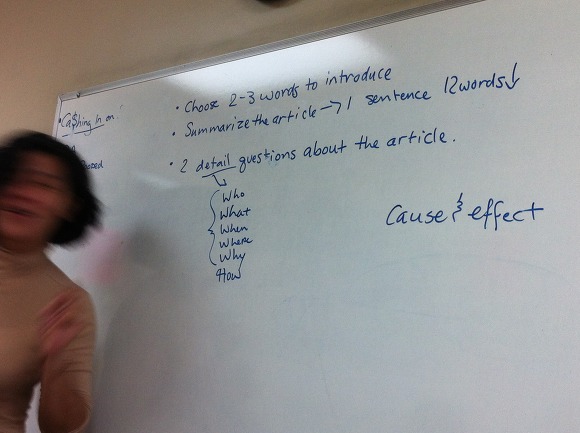 Ca$hing In on
• Choose 2-3 words to introduce
• Summarize the article → 1 sentence 12words↓
• 2 detail questions about the article.
Who
What
When
Where
Why
How
Cause & effect